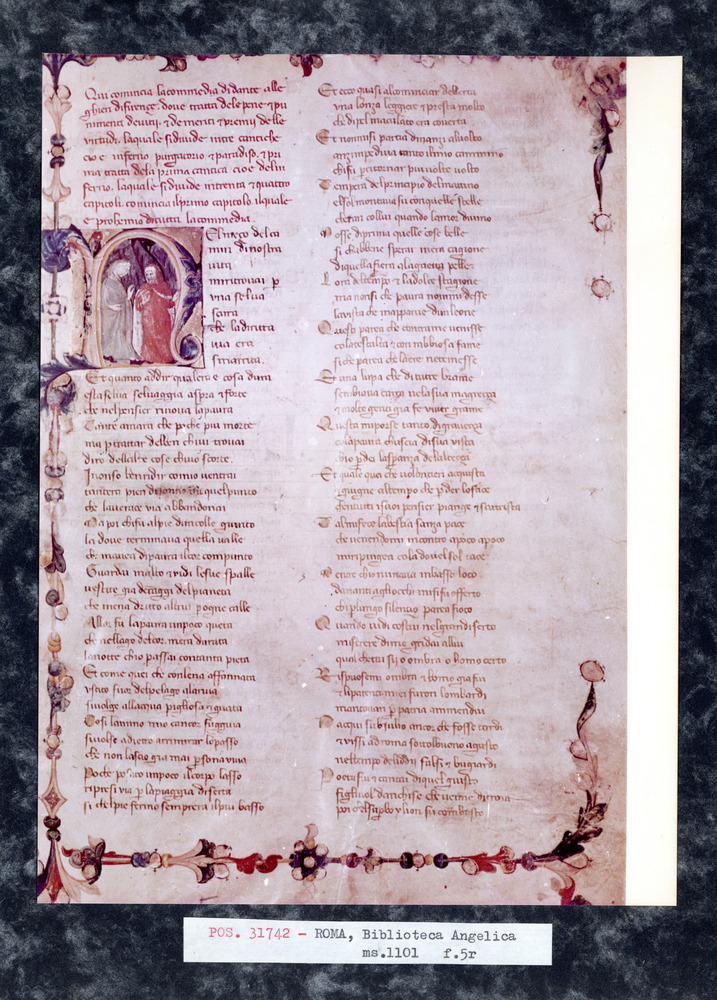 Qui comincia la commedia di dante alle
ghieri di firenze. dove tratta dele pene 
nimenti de vitij. de meriti premij delle
virtudi. laquale si divide intre cantiche
cioe inferno purgatorio paradiso.
ma tratta dela prima cantica cioe delin
ferno. laquale si divide intrenta quattro
capitoli. comincia il primo capitolo ilquale
e prohemio di tutta la commedia.
El mezo del ca
min di nostra
vita
mi ritrovai p
una selva
scura
che la diritta
via era
smarrita.
Et quanto addir qual era e cosa dura
esta selva selvaggia aspra forte
che nel pensier rinova la paura
Tante amara che poche piu morte
ma p trattar del ben chivi trovai
diro dellaltre cose chivo scorte.
I non so ben ridir comio ventrai
tantera pien di sonno quel punto
che la verace via abbandonai
Ma poi chifu al pie dun colle giunto
la dove terminava quella valle
che mavea di paura il cor compunto
Guardai in alto vidi le sue spalle
vestite gia de raggi del pianeta
che mena dritto altrui p ogne calle
Allor fu la paura unpoco queta
che nel lago del cor mera durata
la notte chio passai con tanta pieta
Et come quei che con lena affannata
uscito fuor del pelago a la riva
si volge allacqua pigliosa guata
Cosi lanimo mio cancor fuggiva
si volse adietro a rimirar lo passo
che non lascio gia mai psona viva
Poi che posato un poco il corpo lasso
ripresi via p la piaggia diserta
si chel pie fermo sempre era il piu basso
Et ecco quasi al cominciar dellerta
una lonza leggiera presta molto
che di pel maculato era coverta
Et non mi si partia dinanzi al volto
anzi mpediva tanto il mio cammino
chi fui p ritornar piu volte volto
Temp era del principio del mattino
el sol montava su con quelle stelle
cheran collui quando lamor divino
Mosse di prima quelle cose belle
si cha bene sperar mera cagione
di quella fiera a la gaetta pelle
Lora del tempo la dolce stagione
ma non si che paura non mi desse
la vista che mapparve dun leone
Questi parea che contra me venisse
cola testalta con rabbiosa fame
si che parea che laere ne temesse
Et una lupa che di tutte brame
sembiava carca ne la sua magrezza
molte genti gia fe viver grame
Questa mi porse tanto di gravezza
cola paura chuscia di sua vista
chio pdei la speranza dellaltezza
Et quale quei che volontieri acquista
giugne al tempo che pder lo face
chen tutti i suoi pensier piange sattrista
Tal mi fece la bestia sanza pace
che venendomi incontro a poco a poco
mi ripingea cola dovel sol tace
Mentre chio ruvinava in basso loco
dinanti agliocchi mi si fu offerto
chi p lungo silenzio parea fioco
Quando vidi costui nel gran diserto
miserere di me gridai allui
qual che tu sii o ombra o homo certo
Rispuosemi non homo homo gia fui
li parenti miei furon lombardi
mantovan p patria ammendui
Nacqui sub iulio ancor che fosse tardi
vissi a roma sottol buono agusto
nel tempo deli dij falsi bugiardi
Poeta fui cantai di quel giusto
figliuol danchise che venne di troia
poi chel supbo ylion fu combusto
POS. 31742 - ROMA, Biblioteca Angelica
ms.1101 f.5r